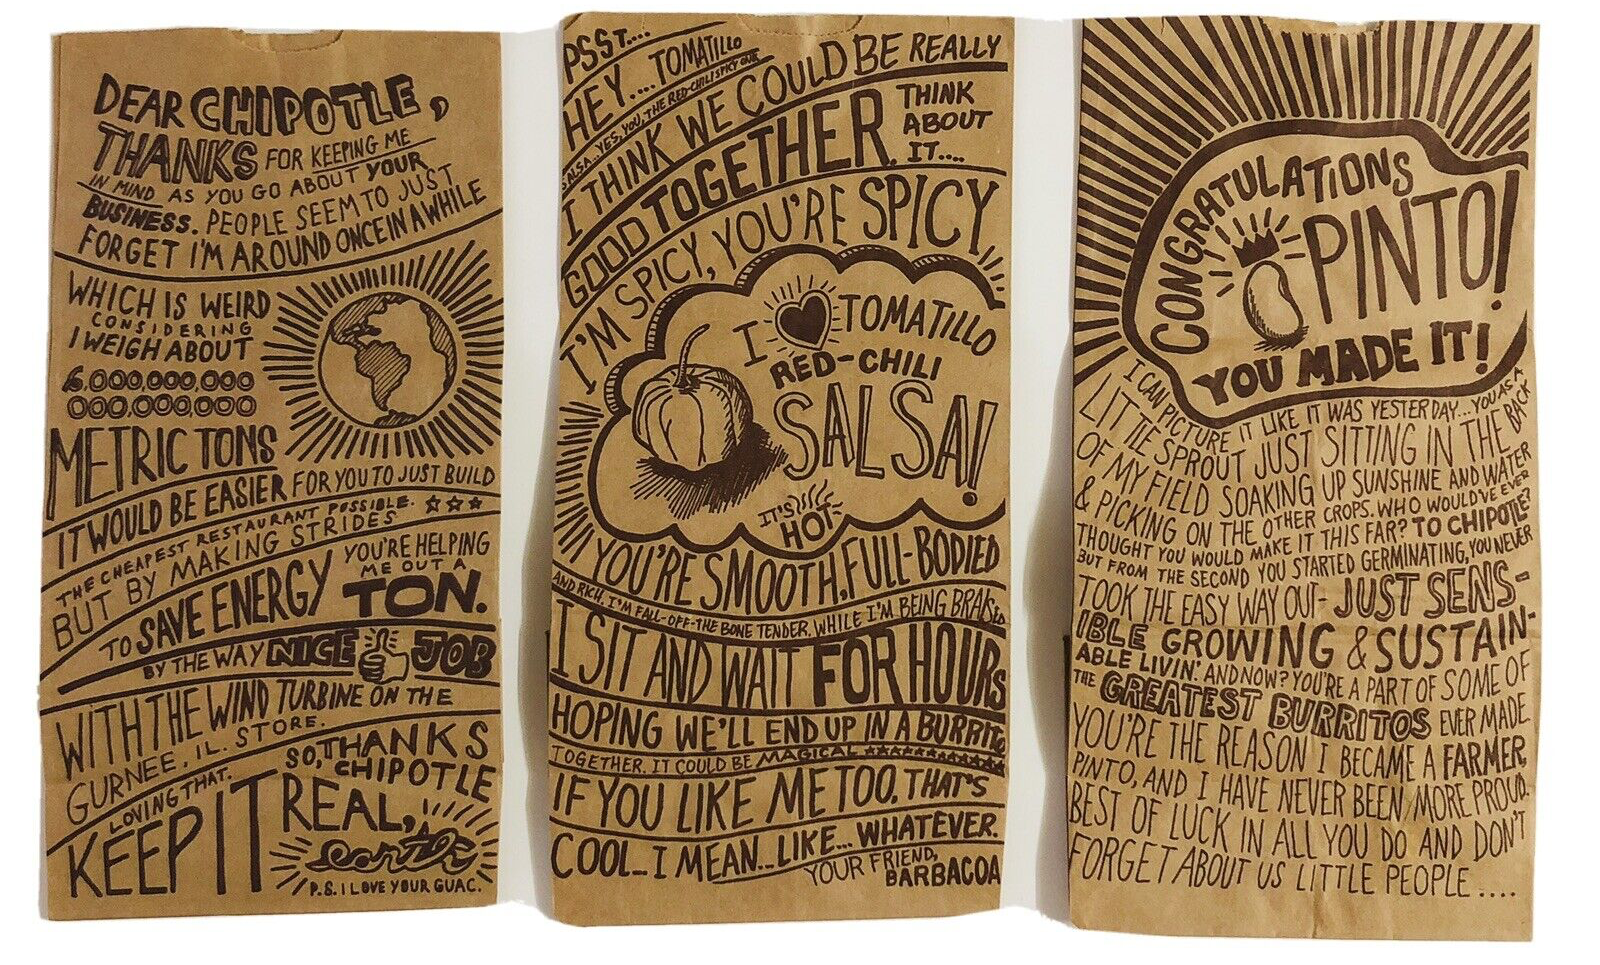 DEAR CHIPOTLE,
THANKS FOR KEEPING ME
IN MIND AS YOU GO ABOUT YOUR
BUSINESS. PEOPLE SEEM TO JUST
FORGET I'M AROUND ONCE IN A WHILE
WHICH IS WEIRD
CONSIDERING
I WEIGH ABOUT
6,000,000,000
000,000,000
METRIC TONS
IT WOULD BE EASIER FOR YOU TO JUST BUILD
THE CHEAPEST RESTAURANT POSSIBLE.
BUT BY MAKING STRIDES
TO SAVE ENERGY YOU'RE HELPING
ME OUT A
TON.
BY THE WAY NICE JOB
WITH THE WIND TURBINE ON THE
GURNEE, IL. STORE.
LOVING THAT.
SO, THANKS
CHIPOTLE
KEEP IT REAL,
earth
P.S. I LOVE YOUR GUAC.
PSST....
HEY.... TOMATILLO
SALSA...YES, YOU, THE RED-CHILI SPICY ONE
I THINK WE COULD BE REALLY
GOOD TOGETHER. THINK
ABOUT
IT....
I'M SPICY, YOU'RE SPICY
I TOMATILLO
RED-CHILI
SALSA!
IT'S
HOT
YOU'RE SMOOTH, FULL-BODIED
AND RICH. I'M FALL-OFF-THE BONE TENDER. WHILE I'M BEING BRAISED
I SIT AND WAIT FOR HOURS
HOPING WE'LL END UP IN A BURRITO
TOGETHER. IT COULD BE MAGICAL
IF YOU LIKE ME TOO, THAT'S
COOL... I MEAN...LIKE... WHATEVER.
YOUR FRIEND,
BARBACOA
CONGRATULATIONS
PINTO!
YOU MADE IT!
I CAN PICTURE IT LIKE IT WAS YESTERDAY...YOU AS A
LITTLE SPROUT JUST SITTING IN THE BACK
OF MY FIELD SOAKING UP SUNSHINE AND WATER
& PICKING ON THE OTHER CROPS. WHO WOULD'VE EVER
THOUGHT YOU WOULD MAKE IT THIS FAR? TO CHIPOTLE?
BUT FROM THE SECOND YOU STARTED GERMINATING, YOU NEVER
TOOK THE EASY WAY OUT- JUST SENS-
IBLE GROWING & SUSTAIN-
ABLE LIVIN'. AND NOW? YOU'RE A PART OF SOME OF
THE GREATEST BURRITOS EVER MADE.
YOU'RE THE REASON I BECAME A FARMER,
PINTO, AND I HAVE NEVER BEEN MORE PROUD.
BEST OF LUCK IN ALL YOU DO AND DON'T
FORGET ABOUT US LITTLE PEOPLE ....